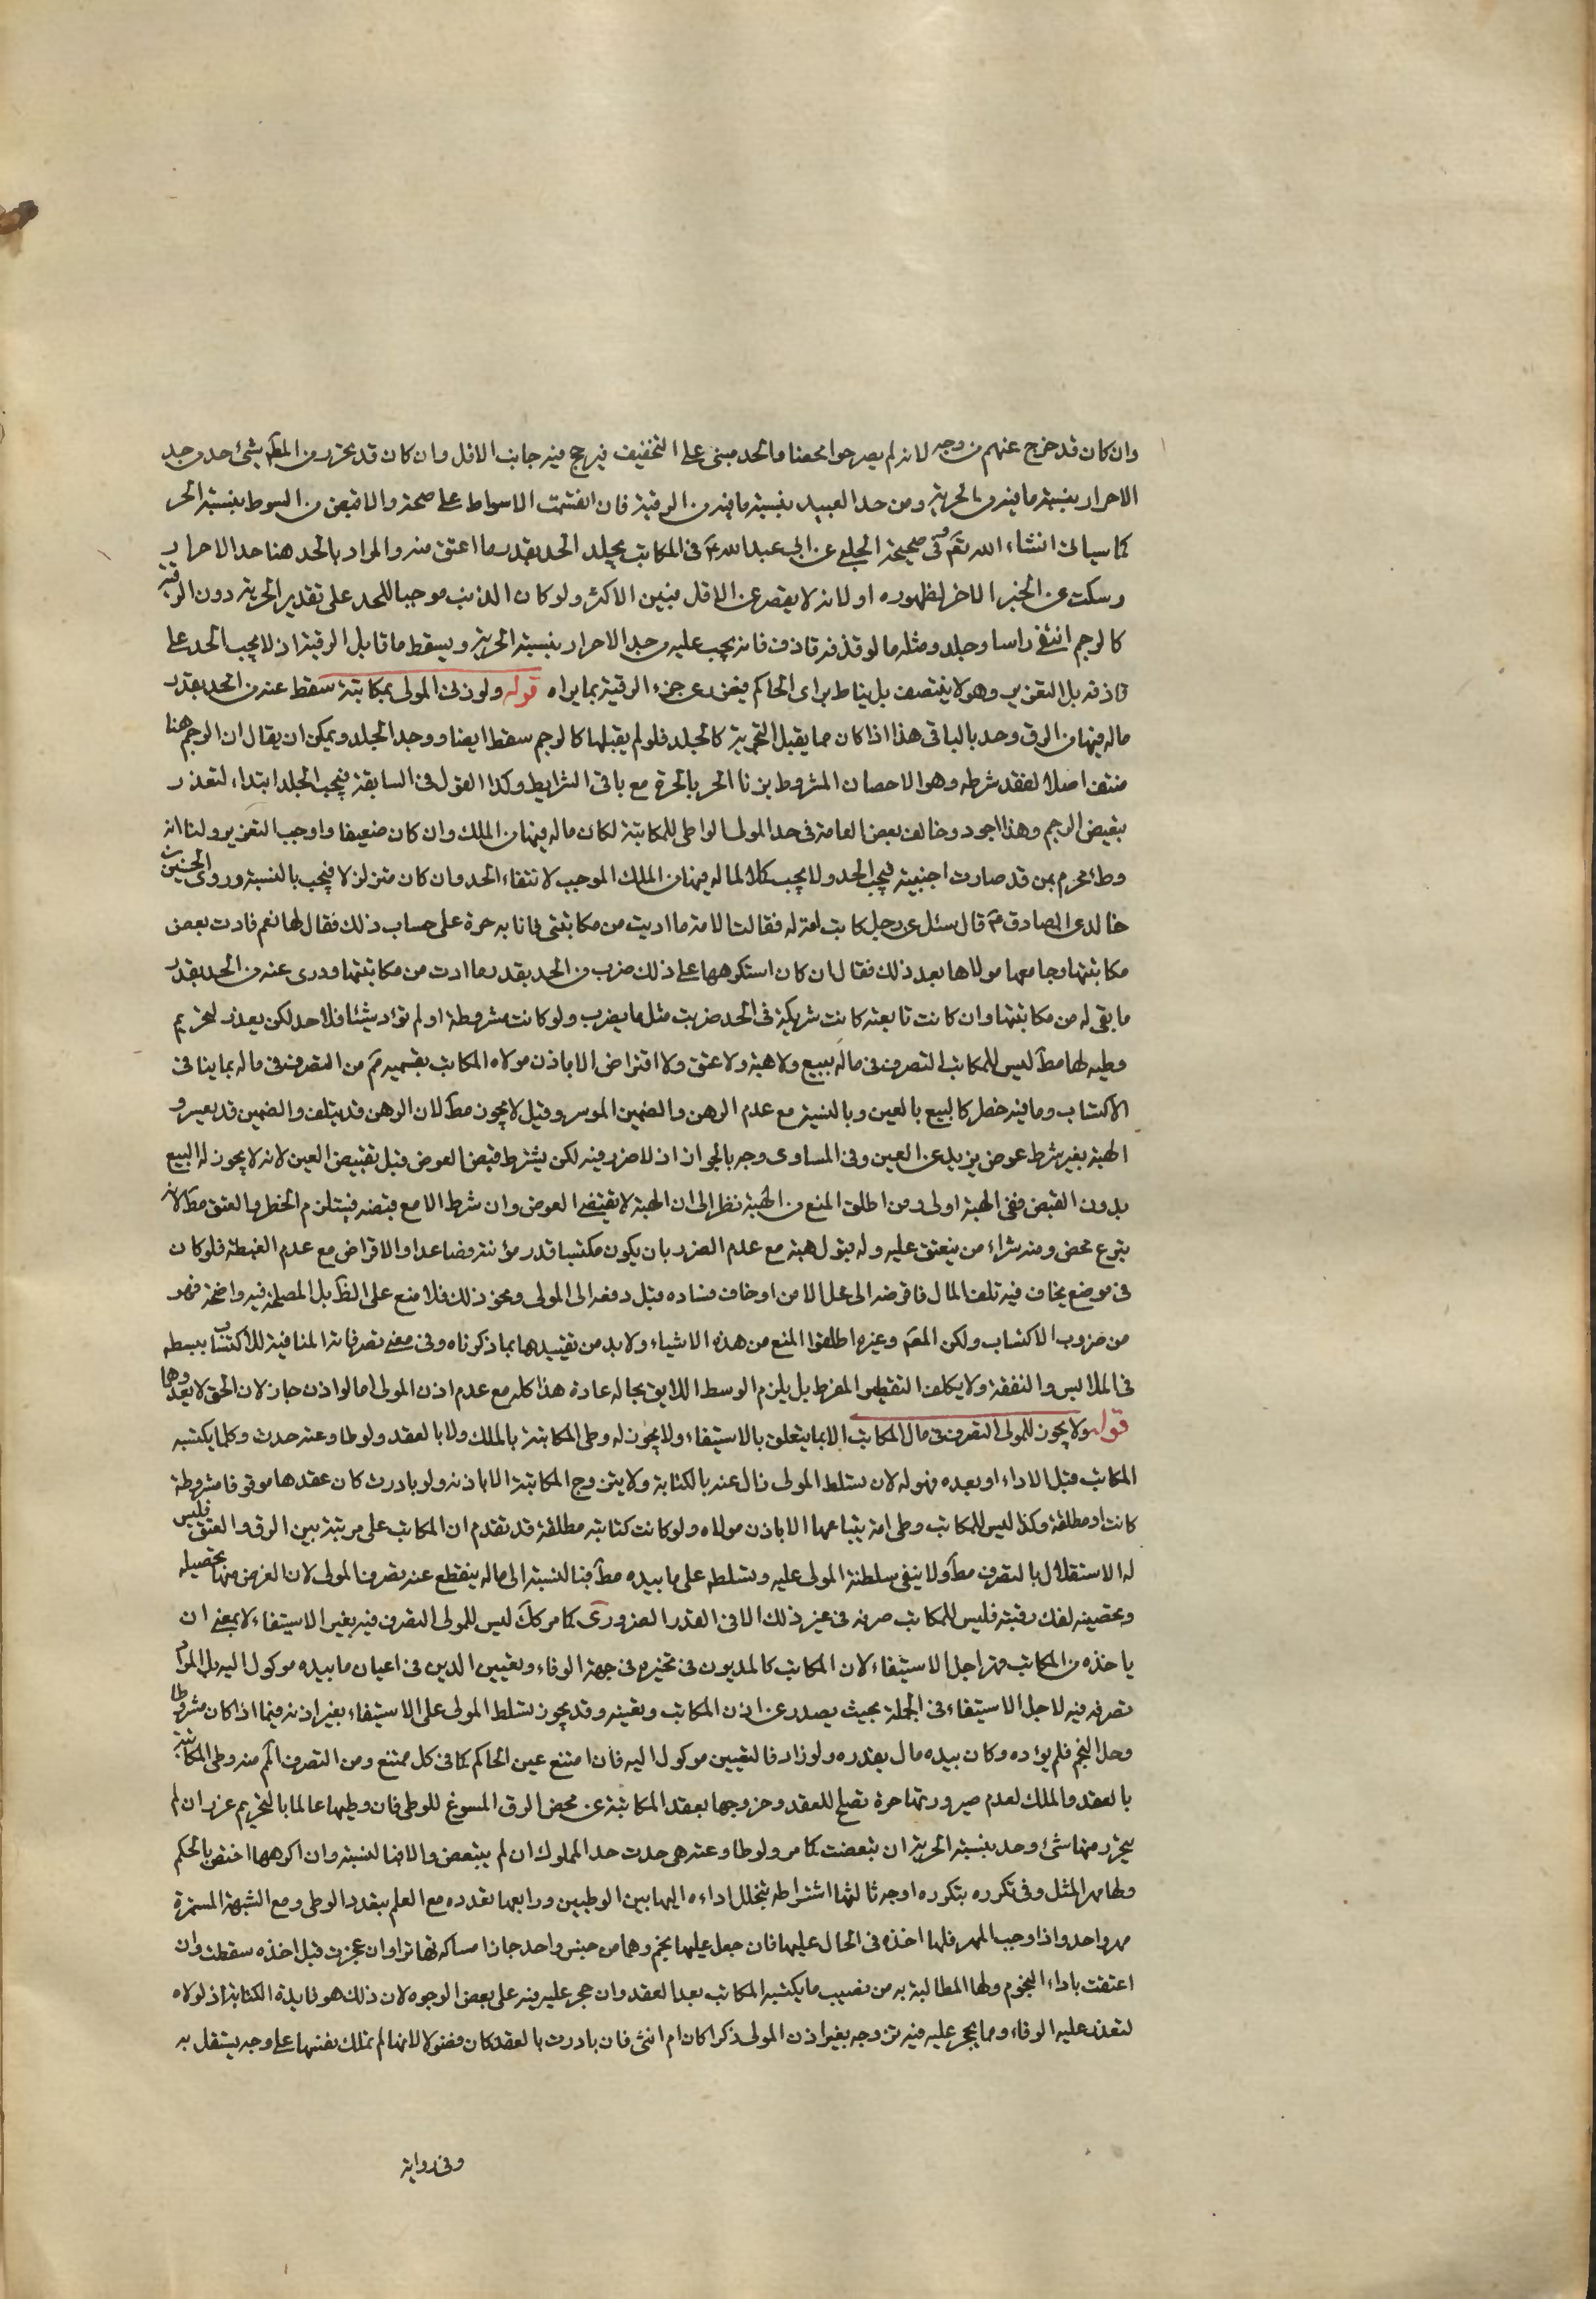 وان كان قد خرج عنهم من وجه لانه لم يصر حرا محضا والحد مبنى على التخفيف فيرجح فيه جانب الاقل وان كان قد تحرر من المطلق شئ حد من حد
الاحرار بنسبة ما فيه من الحرية ومن حد العبيد بنسبة ما فيه من الرقية فان انقسمت الاسواط على صحة والا قبض من السوط بنسبة الجزء
كما سياتى انشاء الله تعم وفى صحيحة الحلبى عن ابى عبد الله ع فى المكاتب يجلد الحد بقدر ما اعتق منه والمراد بالحد هنا حد الاحرار
وسكت عن الجزء الاخر لظهوره او لانه لا يقصر عن الاقل فبين الاكثر ولو كان الذنب موجبا للحد على تقدير الحرية دون الرقية
كالرجم انتفى راسا وجلد ومثله ما لو قذفه قاذف فانه يجب عليه من حد الاحرار بنسبة الحرية ويسقط ما قابل الرقية اذ لا يجب الحد على
قاذفه بل التعزير وهو لا ينتصف بل يناط براى الحاكم فيعزر عن جزء الرقية بما يراه قوله ولو زنى المولى بمكاتبته سقط عنه من الحد بقدر
ماله فيها من الرق وحد بالباقى هذا اذا كان مما يقبل التجزية كالجلد فلو لم يقبلها كالرجم سقط ايضا ووجد الجلد ويمكن ان يقال ان الرجم هنا
منتف اصلا لفقد شرطه وهو الاحصان المشروط بزنا الحر بالحرة مع باقى الشرايط وكذا القول فى السابقة فيجب الجلد ابتداء لتعذر
تبعيض الرجم وهذا اجود وخالف بعض العامة فى حد المولى الواطى للمكاتبة لمكان ماله فيها من الملك وان كان ضعيفا واوجب التعزير ولنا انه
وطئ محرم بمن قد صارت اجنبية فيجب الحد ولا يجب كملا لما له فيها من الملك الموجب لانتفاء الحد وان كان متزلزلا فيجب بالنسبة وروى الحسين بن
خالد عن الصادق ع قال سئل عن رجل كاتب امة له فقالت الامة ما اديت من مكاتبتى فانا به حرة على حساب ذلك فقال لها نعم فادت بعض
مكاتبتها وجامعها مولاها بعد ذلك فقال ان كان استكرهها على ذلك ضرب من الحد بقدر ما ادت من مكاتبتها ودرئ عنه من الحد بقدر
ما بقى له من مكاتبتها وان كانت تابعته كانت شريكة فى الحد ضربت مثل ما يضرب ولو كانت مشروطة او لم تؤد شيئا فلا حد لكن يعزر لتحريم
وطيه لها مطلقا ليس للمكاتب التصرف فى ماله ببيع ولا هبة ولا عتق ولا اقتراض الا باذن مولاه المكاتب بقسميه من التصرف فى ماله بما ينافى
الاكتساب وما فيه خطر كالبيع بالعين وبالنسية مع عدم الرهن والضمين الموسر وقيل لا يجوز مطلقا لان الرهن قد يتلف والضمين قد يعسر و
الهبة بغير شرط عوض يزيد عن العين وفى المساوى وجه بالجواز اذ لا ضرر فيه لكن يشترط قبض العوض قبل تقبيض العين لانه لا يجوز له البيع
بدون القبض ففى الهبة اولى ومن اطلق المنع من الهبة نظر الى ان الهبة لا تقتضى العوض وان شرط الا مع قبضه فيستلزم الخطر والعتق مطلقا لانه
تبرع محض ومنه شراء من ينعتق عليه وله قبول هبته مع عدم الضرر بان يكون مكتسبا قدر مؤنته فصاعدا والاقراض مع عدم الغبطة فلو كان
فى موضع يخاف فيه تلف المال فاقرضه الى محل الامن او خاف فساده قبل دفعه الى المولى ونحو ذلك فلا منع على الظ بل المصلحة فيه واضحة فهو
من ضروب الاكتساب ولكن المصم وغيره اطلقوا المنع من هذه الاشياء ولا بد من تقييدها بما ذكرناه وفى معنى تصرفاته المنافية للاكتساب بسطه
فى الملابس والنفقة ولا يكلف التقطير المفرط بل يلزم الوسط اللايق بحاله عادة هذا كله مع عدم اذن المولى اما لو اذن جاز لان الحق لا يعدوهما
قوله ولا يجوز للمولى التصرف فى مال المكاتب الا بما يتعلق بالاستيفاء ولا يجوز له وطى المكاتبة بالملك ولا بالعقد ولو طاوعته حدت وكلما يكتسبه
المكاتب قبل الاداء او بعده فهو له لان تسلط المولى زال عنه بالكتابة ولا يتزوج المكاتبة الا باذنه ولو بادرت كان عقدها موقوفا مشروطة
كانت او مطلقة وكذا ليس للمكاتب وطى امة يبتاعها الا باذن مولاه ولو كانت كتابته مطلقة قد تقدم ان المكاتب على مرتبة بين الرق والعتق فليس
له الاستقلال بالتصرف مطلقا ولا ينفى سلطنة المولى عليه وتسلطه على ما بيده مطلقا فبالنسبة الى ماله ينقطع عنه تصرف المولى لان الغرض منها تحصيله
وتحصينه لفك رقبته فليس للمكاتب صرفه فى غير ذلك الا فى القدر الضرورى كما مر كك ليس للمولى التصرف فيه بغير الاستيفاء لا بمعنى ان
ياخذه من المكاتب قهرا لاجل الاستيفاء لان المكاتب كالمديون فى تخيره فى جهة الوفاء وتعيين الدين فى اعيان ما بيده موكول اليه بل المراد
تصرفه فيه لاجل الاستيفاء فى الجملة بحيث يصدر عن اذن المكاتب وتعينه وقد يجوز تسلط المولى على الاستيفاء بغير اذنه فيما اذا كان مشروطا
وحل النجم فلم يؤده وكان بيده مال بقدره ولو زاد فالتعيين موكول اليه فان امتنع عين الحاكم كما فى كل ممتنع ومن التصرف المم منه وطى المكاتبة
بالعقد والملك لعدم صيرورتها حرة تصلح للعقد وخروجها بعقد المكاتبة عن محض الرق المسوغ للوطى فان وطيها عالما بالتحريم عزر ان لم
يتحرر منها شئ وحد بنسبة الحرية ان تبعضت كما مر ولو طاوعته هى حدت حد المملوك ان لم يتبعض والا فبالنسبة وان اكرهها اختص بالحكم
ولها مهر المثل وفى تكرره بتكرره اوجه ثالثها اشتراطه بتخلل اداءه اليها بين الوطيين ورابعها تعدده مع العلم بتعدد الوطى ومع الشبهة المستمرة
مهر واحد واذا وجب المهر فلها اخذه فى الحال عليها فان جعل عليها نجم وهما من جنس واحد جاز امساكه تهاترا وان عجزت قبل اخذه سقطت وان
اعتقت باداء النجوم ولها المطالبة به من نصيب ما يكتسبه المكاتب بعد العقد وان حجر عليه فيه على بعض الوجوه لان ذلك هو فايدة الكتابة اذ لولاه
لتعذر عليه الوفاء ومما يحجر عليه فيه تزوجه بغير اذن المولى ذكرا كان ام انثى فان بادرت بالعقد كان فضولا لانها لم تملك نفسها على وجه يستقل به
وفى رواية